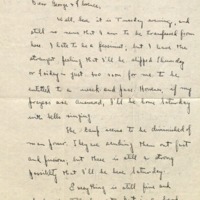 Dear George & Louise,
Well, here it is Tuesday evening, and
still no news that I am to be transferred from
here. I hate to be a pessimist, but I have the
strangest feeling that I'll be shipped Thursday
or Friday - just too soon for me to be
entitled to a week end pass. However, if my
prayers are answered, I'll be home Saturday
with bells ringing.
The Camp seems to be diminished of
man power. They are sending them out fast
and furious, but there is still a strong
possibility that I'll be here Saturday.
Everything is still fine and